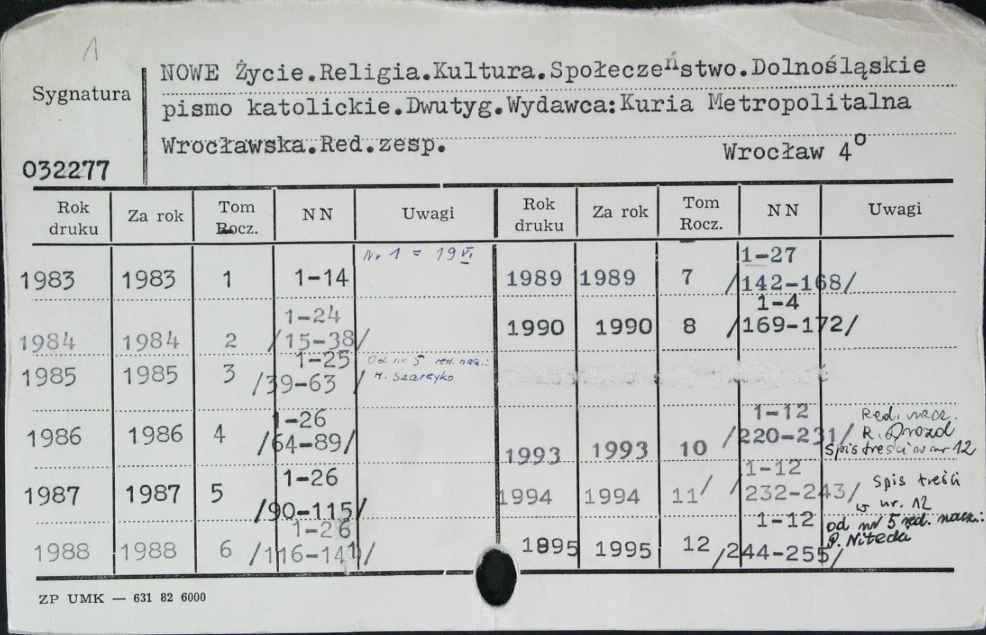 1
Sygnatura
NOWE Życie.Religia.Kultura.Społeczeństwo.Dolnośląskie
pismo katolickie.Dwutyg.Wydawca:Kuria Metropolitalna
Wrocławska.Red.zesp.
Wrocław 4°
032277
Rok druku Za rok Tom Rocz. NN Uwagi Rok druku Za rok Tom Rocz. NN Uwagi
1983 1983 1 1-14 Nr 1 = 19 VI
1984 1984 2 1-24 /15-38/
1985 1985 3 1-25 /39-63/ Od nr 5 red. nacz.: M. Szarejko
1986 1986 4 1-26 /64-89/
1987 1987 5 1-26 /90-115/
1988 1988 6 1-26 /116-141/
1989 1989 7 1-27 /142-168/
1990 1990 8 1-4 /169-172/
1993 1993 10 1-12 /220-231/ Red. nacz. R. Drozd Spis treści w nr 12
1994 1994 11/ 1-12 /232-243/ Spis treści w nr. 12
1895 1995 12 1-12 /244-255/ od nr 5 red. nacz.: P. Nitecka
ZP UMK — 631 82 6000